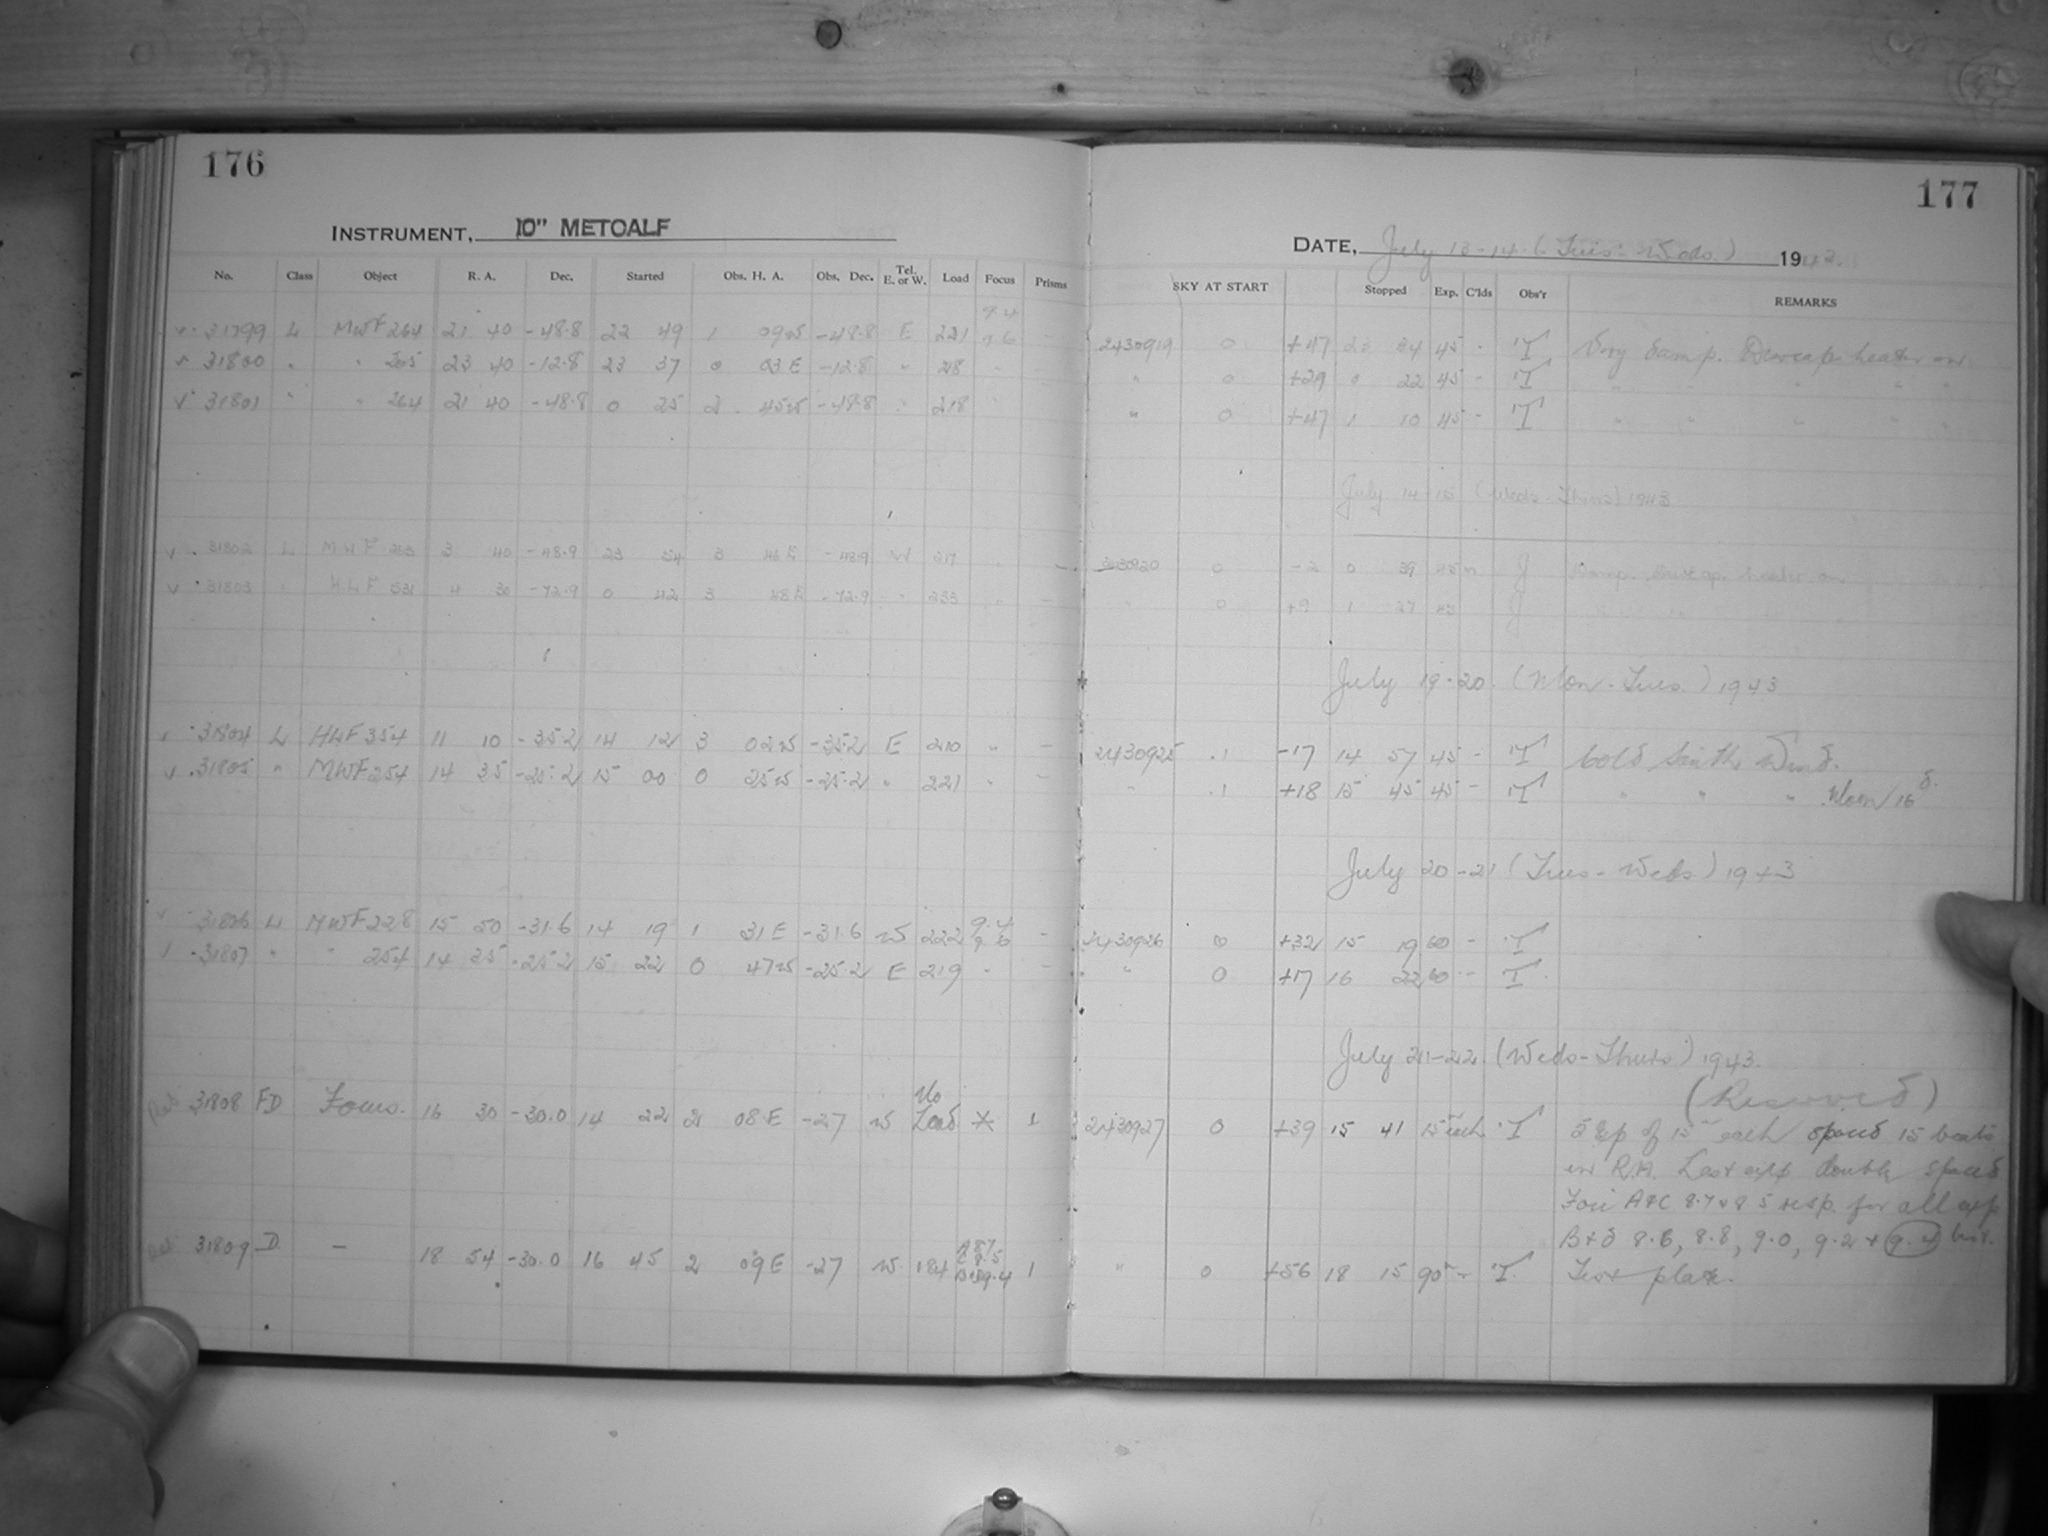 176
177
INSTRUMENT, 10" METCALF
DATE, July 13-14 (Tues-Weds.) 1943.
No. Class Object R. A. Dec. Started Obs. H. A. Obs. Dec. Tel. E. or W. Load Focus Prisms
SKY AT START Stopped Exp. C'lds Obs'r REMARKS
9.4
31799 L MWF 264 21 40 -48.8 22 49 1 09W -48.8 E 221 9.6 2430919 0 +47 23 34 45 - T Very Damp. Dewcap heater on
31800 " " 265 23 40 -12.8 23 37 0 03E -12.8 " 218 " 0 +29 0 22 45 - T " " " " "
31801 " " 264 21 40 -48.8 0 25 2 45W -48.8 " 218 " 0 +47 1 10 45 - T " " " " "
July 14-15 (Weds-Thurs) 1943
v 31802 L MWF 233 3 40 -48.9 23 54 3 46E -48.9 W 217 " - 2430920 0 -2 0 39 45m J Damp. Dewcap heater on
v 31803 " HLF 531 4 30 -72.9 0 42 3 48E -72.9 " 233 " - " 0 +9 1 27 45 J
July 19-20 (Mon-Tues.) 1943
31804 L HLF 354 11 10 -35.2 14 12 3 02W -35.2 E 210 " - 2430925 .1 -17 14 57 45 - T Cold South Wind.
v 31805 " MWF 254 14 35 -25.2 15 00 0 25W -25.2 " 221 " - " .1 +18 15 45 45 - T " " " Moon 16d.
July 20-21 (Tues-Weds) 1943
v 31806 L MWF 228 15 50 -31.6 14 19 1 31E -31.6 W 222 9.4 9.6 - 2430926 0 +32 15 19 60 - T
31807 " " 254 14 35 -25.2 15 22 0 47W -25.2 E 219 " - " 0 +17 16 22 60 - T
July 21-22 (Weds-Thurs) 1943.
(Reserved)
31808 FD Focus. 16 30 -30.0 14 22 2 08E -27 W No Load * 1 2430927 0 +39 15 41 15m each T 5 Exp of 15m each spaced 15 beats
in R.A. Last exp double spaced
Foci A+C 8.7+8.5 resp. for all exp
B+D 8.6, 8.8, 9.0, 9.2 + 9.4
31809 D - 18 54 -30.0 16 45 2 09E -27 W 184 A 8.7 C 8.5 B+D 9.4 1 " 0 +56 18 15 90m - T Test plate.